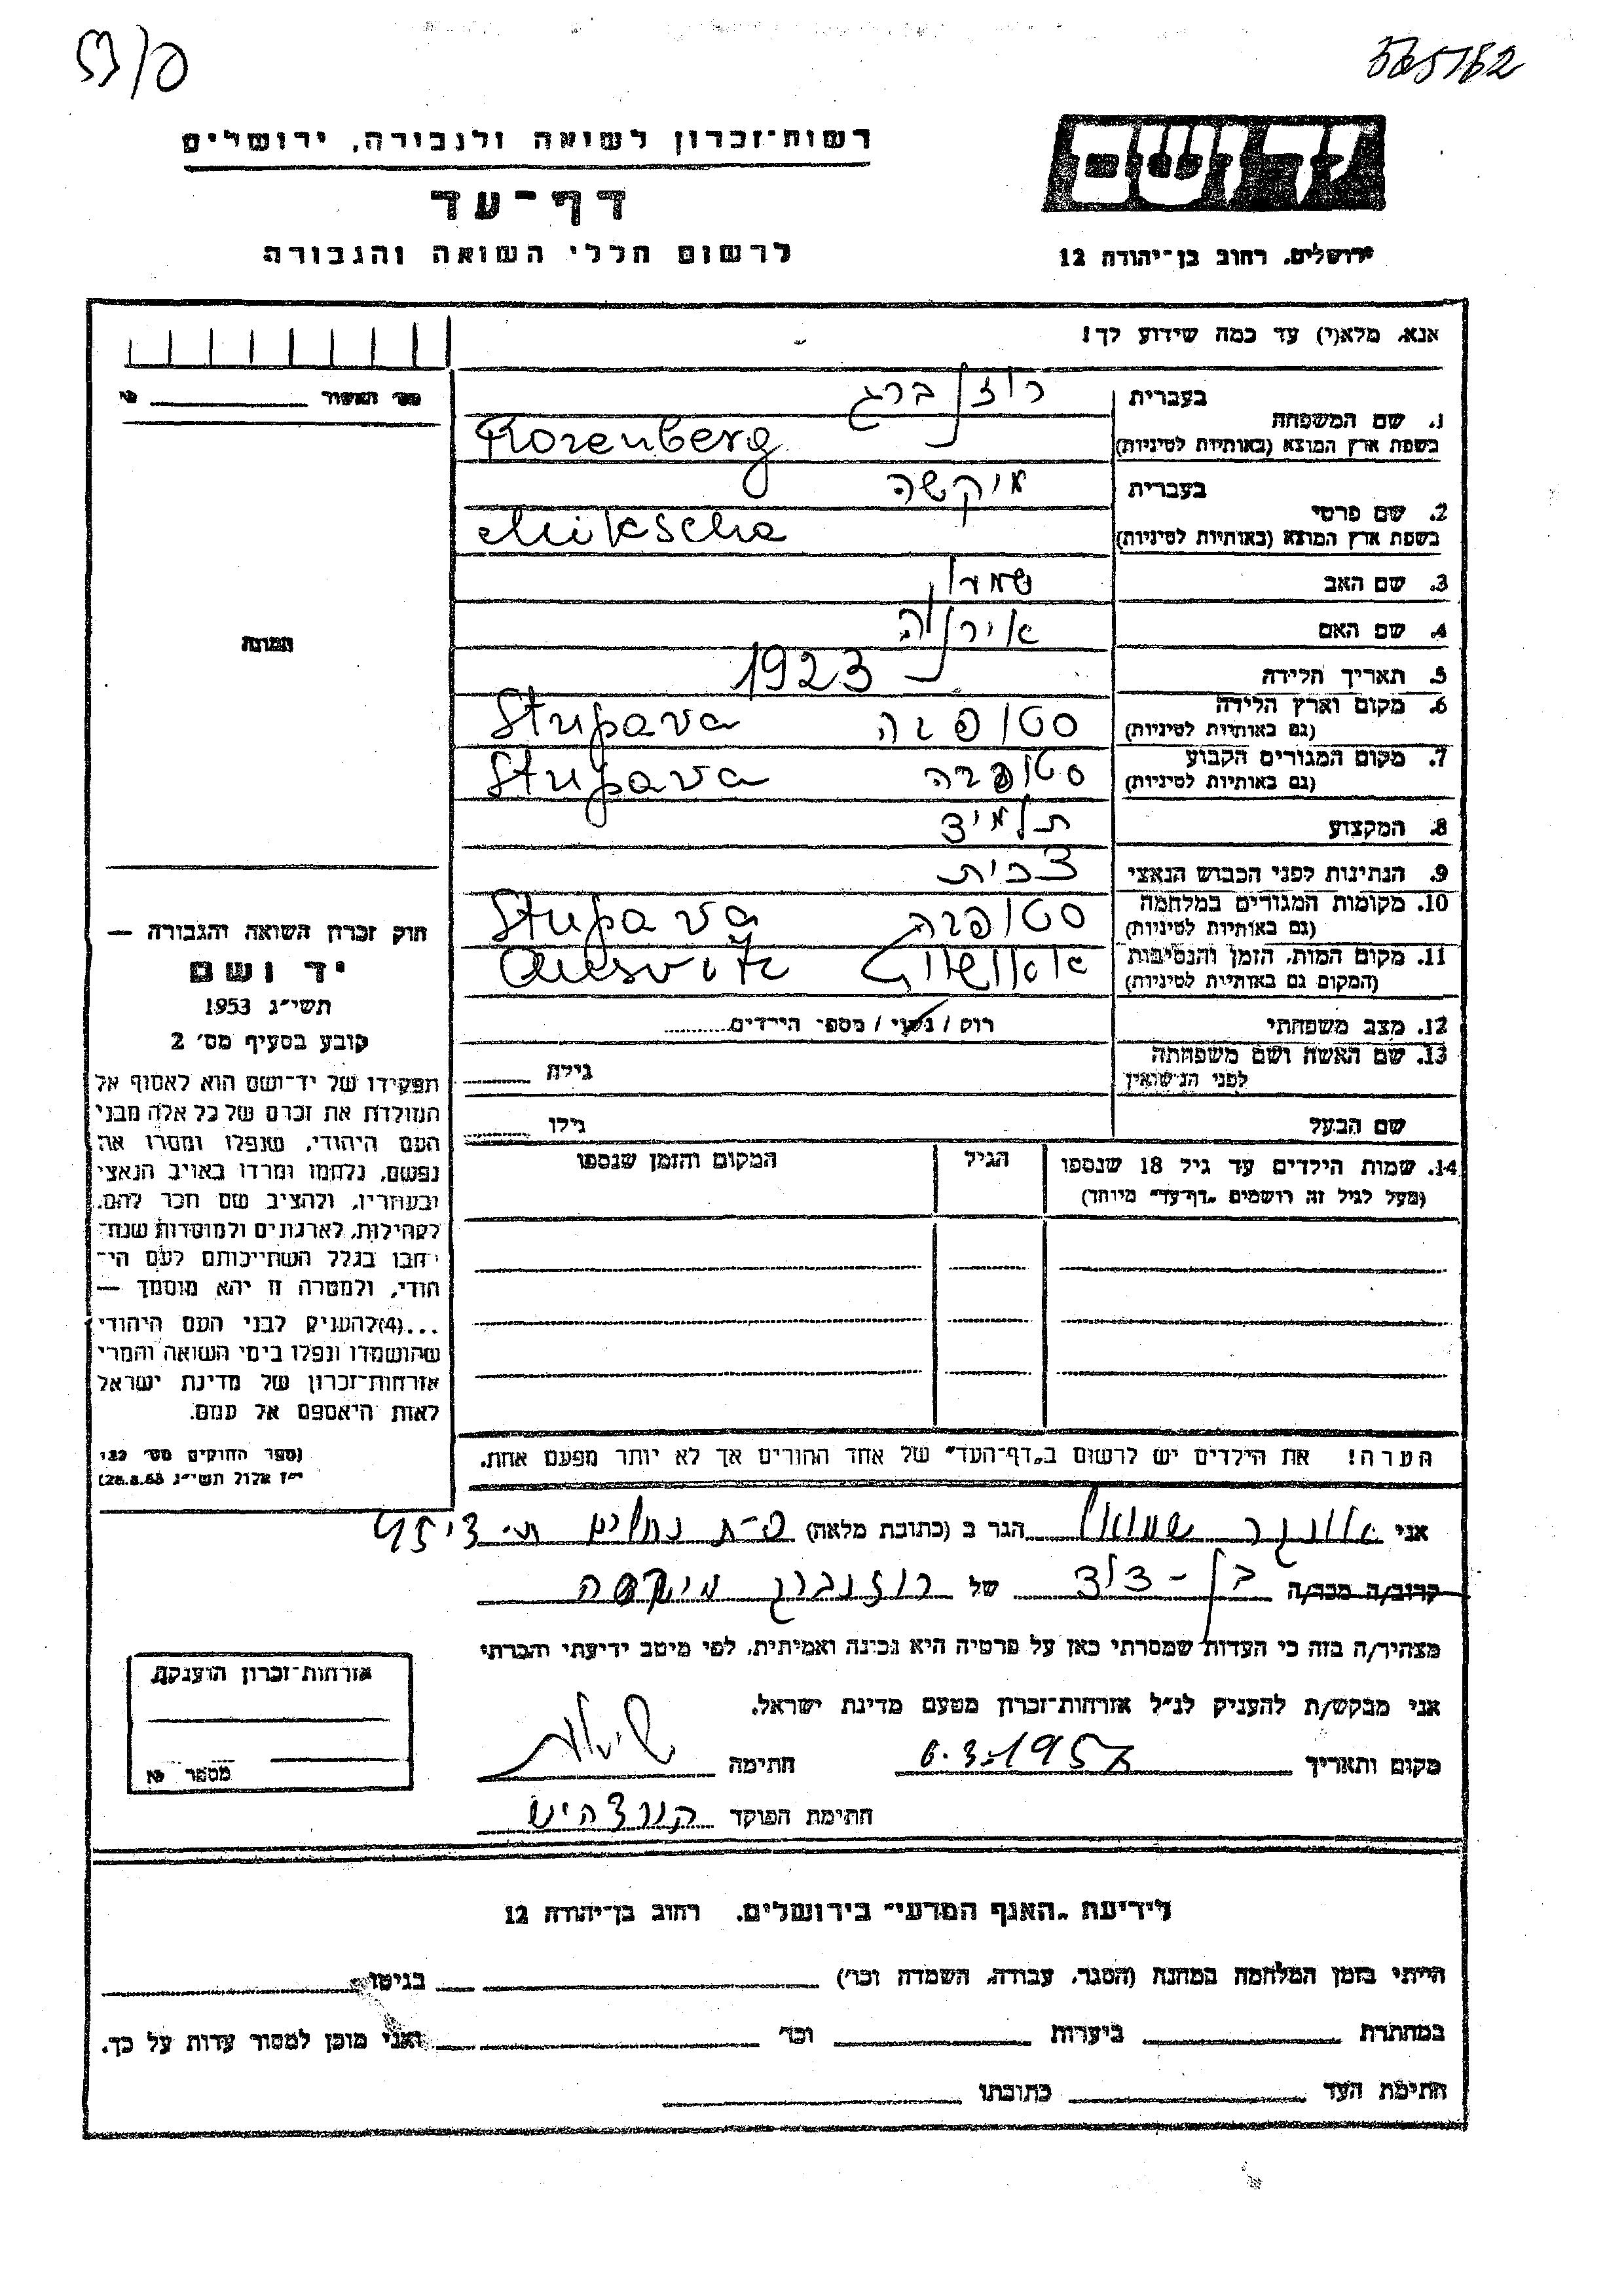 565182
רשות־זכרון לשואה ולגבורה, ירושלים
דף־עד
לרשום חללי השואה והגבורה
ידושם
ירושלים, רחוב בן־יהודה 12
אנא, מלא(י) עד כמה שידוע לך!
1. שם המשפחה
בעברית רוזנברג
בשפת ארץ המוצא (באותיות לטיניות) Rozenberg
2. שם פרטי
בעברית מיקשה
בשפת ארץ המוצא (באותיות לטיניות) Mikscha
3. שם האב שמעון
4. שם האם
5. תאריך הלידה 1923
6. מקום וארץ הלידה סטופבה Stupava
(גם באותיות לטיניות)
7. מקום המגורים הקבוע סטופבה Stupava
(גם באותיות לטיניות)
8. המקצוע תלמיד
9. הנתינות לפני הכבוש הנאצי צכית
10. מקומות המגורים במלחמה סטופבה Stupava
(גם באותיות לטיניות)
11. מקום המות, הזמן והנסיבות אאושויץ Auesvitz
(המקום גם באותיות לטיניות)
12. מצב משפחתי רוק / נשוי / מספר הילדים
13. שם האשה ושם משפחתה גילה
לפני הנישואין
שם הבעל גילו
14. שמות הילדים עד גיל 18 שנספו הגיל המקום והזמן שנספו
(מעל לגיל זה רושמים „דף־עד" מיוחד)
הערה! את הילדים יש לרשום ב„דף־העד" של אחד ההורים אך לא יותר מפעם אחת.
מס' האשור
התמונה
חוק זכרון השואה והגבורה —
יד ושם
תשי"ג 1953
קובע בסעיף מס' 2
תפקידו של יד־ושם הוא לאסוף אל
המולדת את זכרם של כל אלה מבני
העם היהודי, שנפלו ומסרו את
נפשם, נלחמו ומרדו באויב הנאצי
ובעוזריו, ולהציב שם וזכר להם,
לקהילות, לארגונים ולמוסדות שנח־
רבו בגלל השתייכותם לעם הי־
הודי, ולמטרה זו יהא מוסמך —
...(4) להעניק לבני העם היהודי
שהושמדו ונפלו בימי השואה והמרי
אזרחות־זכרון של מדינת ישראל
לאות היאספם אל עמם.
(ספר החוקים מס' 132
י"ז אלול תשי"ג 28.8.53)
אני אונגר שמואל הגר ב (כתובת מלאה)
קרוב/ה מכר/ה בן-דוד של רוזנברג מיקשה
מצהיר/ה בזה כי העדות שמסרתי כאן על פרטיה היא נכונה ואמיתית, לפי מיטב ידיעתי והכרתי
אני מבקש/ת להעניק לנ"ל אזרחות־זכרון מטעם מדינת ישראל.
מקום ותאריך 6.3.1957 חתימה
חתימת הפוקד
אזרחות־זכרון הוענקה
מספר
לידיעת „האגף המדעי" בירושלים, רחוב בן־יהודה 12
הייתי בזמן המלחמה במחנה (הסגר, עבודה, השמדה וכו') בגיטו
במחתרת ביערות וכו' ואני מוכן למסור עדות על כך.
חתימת העד כתובתו